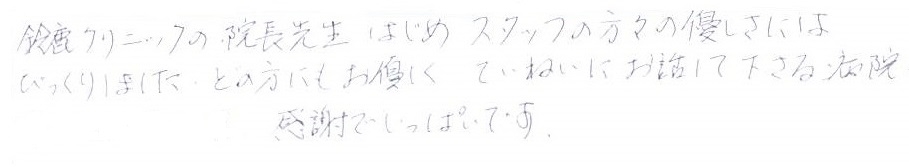 鈴鹿クリニックの院長先生はじめスタッフの方々の優しさには
びっくりしました。どの方にもお優しくていねいにお話して下さる病院
感謝でいっぱいです。